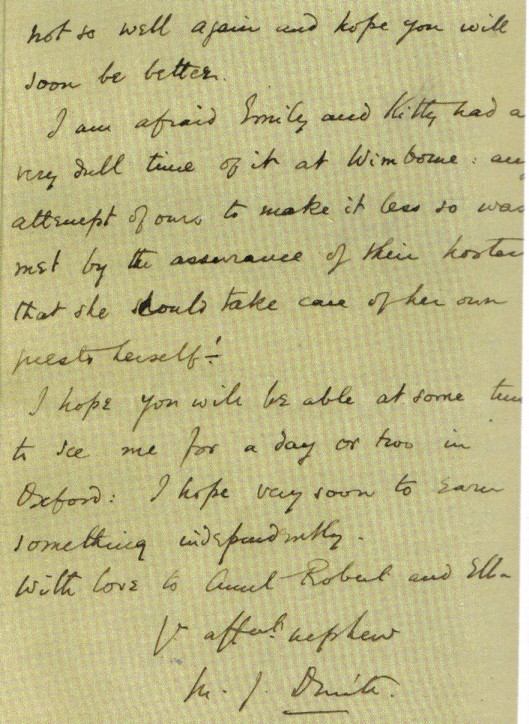 not so well again and hope you will
soon be better.
I am afraid Emily and Kitty had a
very dull time of it at Wimborne: any
attempt of ours to make it less so was
met by the assurance of their hostess
that she should take care of her own
guests herself!
I hope you will be able at some time
to see me for a day or two in
Oxford: I hope very soon to earn
something independently.
With love to Aunt Robert and
Yr affte nephew
M. J.